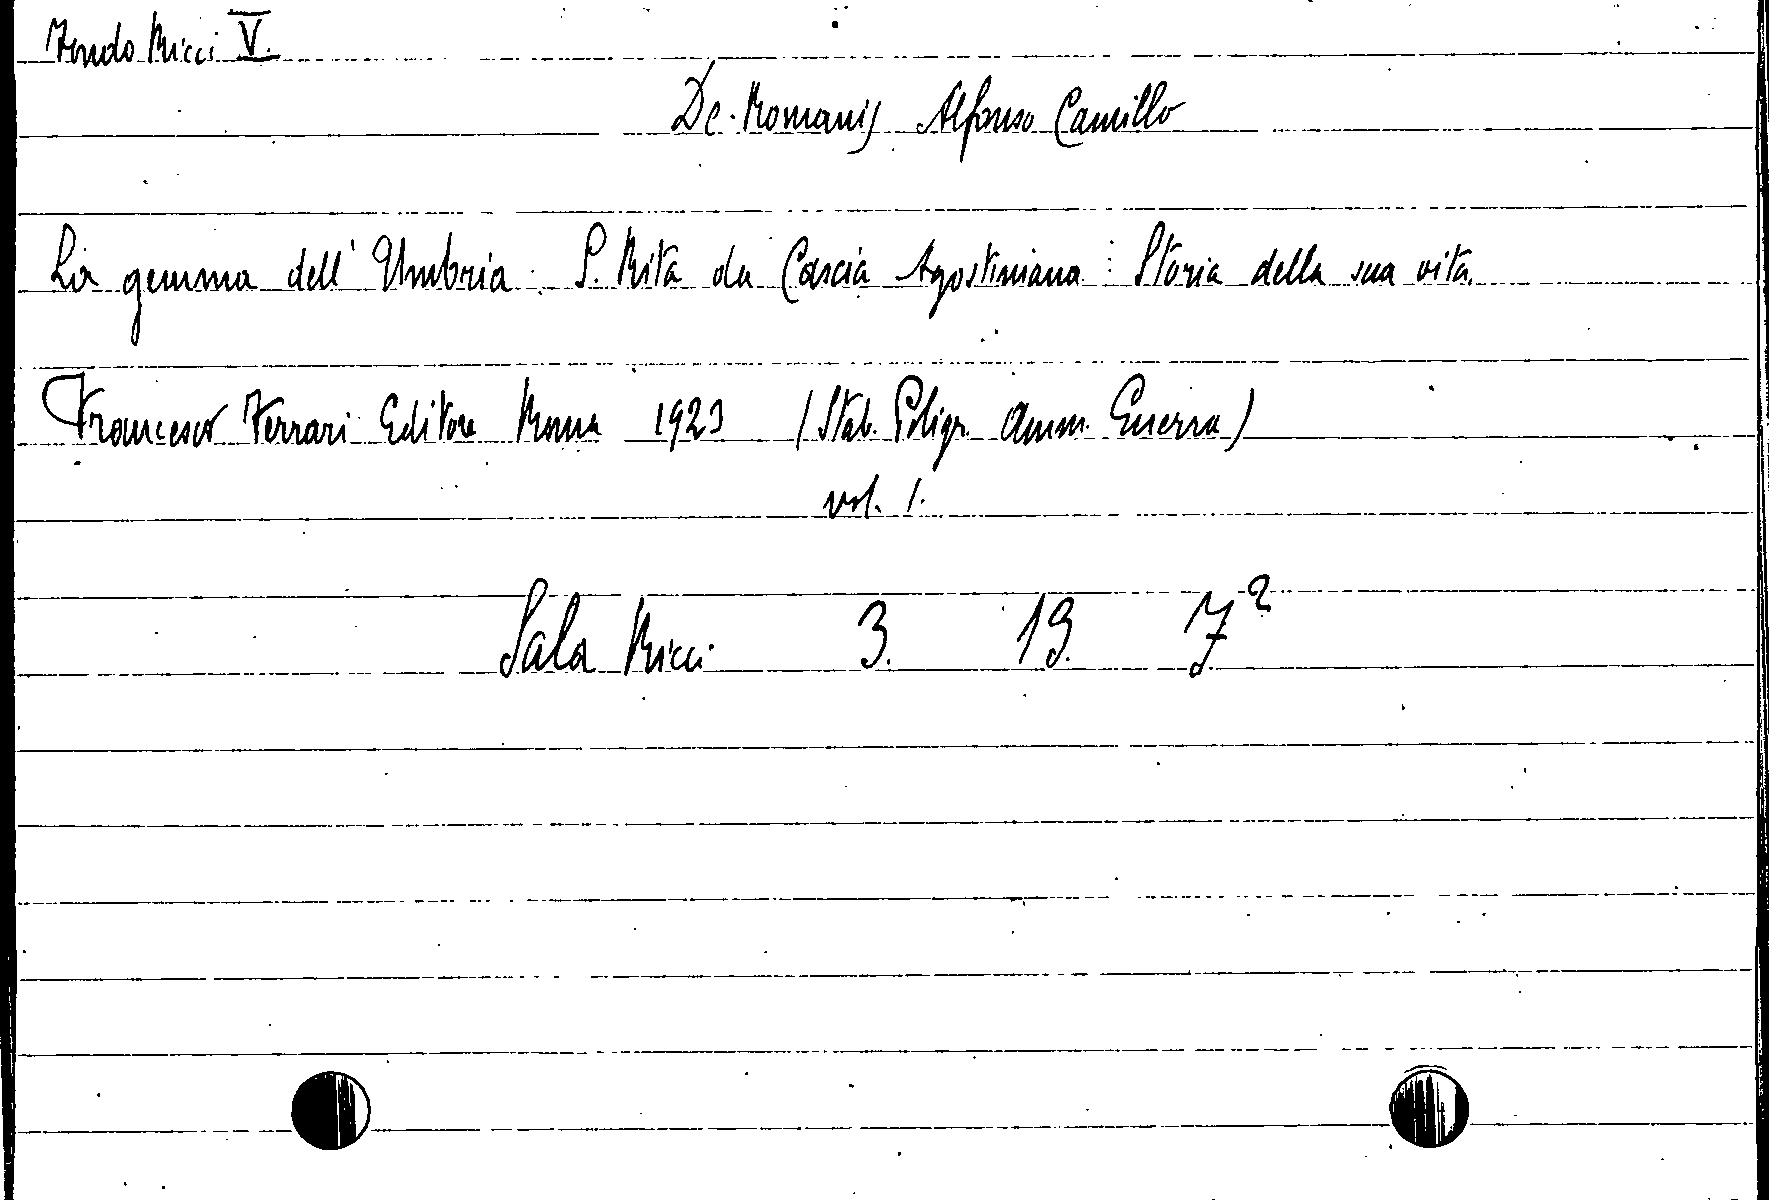 Fondo Ricci V.
De-Romanis Alfonso Camillo
La gemma dell' Umbria : S. Rita da Cascia Agostiniana : Storia della sua vita.
Francesco Ferrari Editore Roma 1923 (Stab. Poligr. Amm. Guerra)
vol. 1.
Sala Ricci 3. 19. 7²